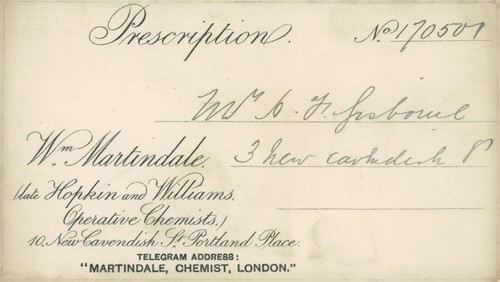 Prescription. No. 170501
Mrs F. Gisborne
Wm. Martindale, 3 New Cavendish St
(late Hopkin and Williams,
Operative Chemists.)
10, New Cavendish St. Portland Place.
TELEGRAM ADDRESS:
"MARTINDALE, CHEMIST, LONDON."